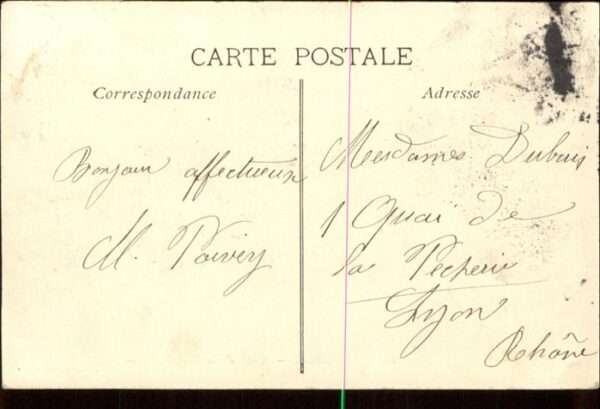 CARTE POSTALE
Correspondance
Adresse
Bonjour affectueux
M. Poivey
Mesdames Dubuis
1 Quai de
la Pêcherie
Lyon
Rhône